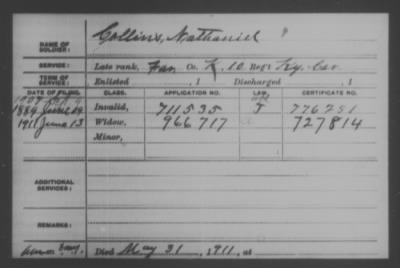 Collins, Nathaniel
NAME OF SOLDIER:
SERVICE: Late rank, Far Co. K, 10 Reg't Ky. Cav.
TERM OF SERVICE: Enlisted , 1 Discharged , 1
DATE OF FILING. CLASS. APPLICATION NO. LAW. CERTIFICATE NO.
1889 June 19 Invalid, 711535 J 776251
1911 June 13 Widow, 966717 727814
Minor,
ADDITIONAL SERVICES:
REMARKS:
Died May 31, 1911, at